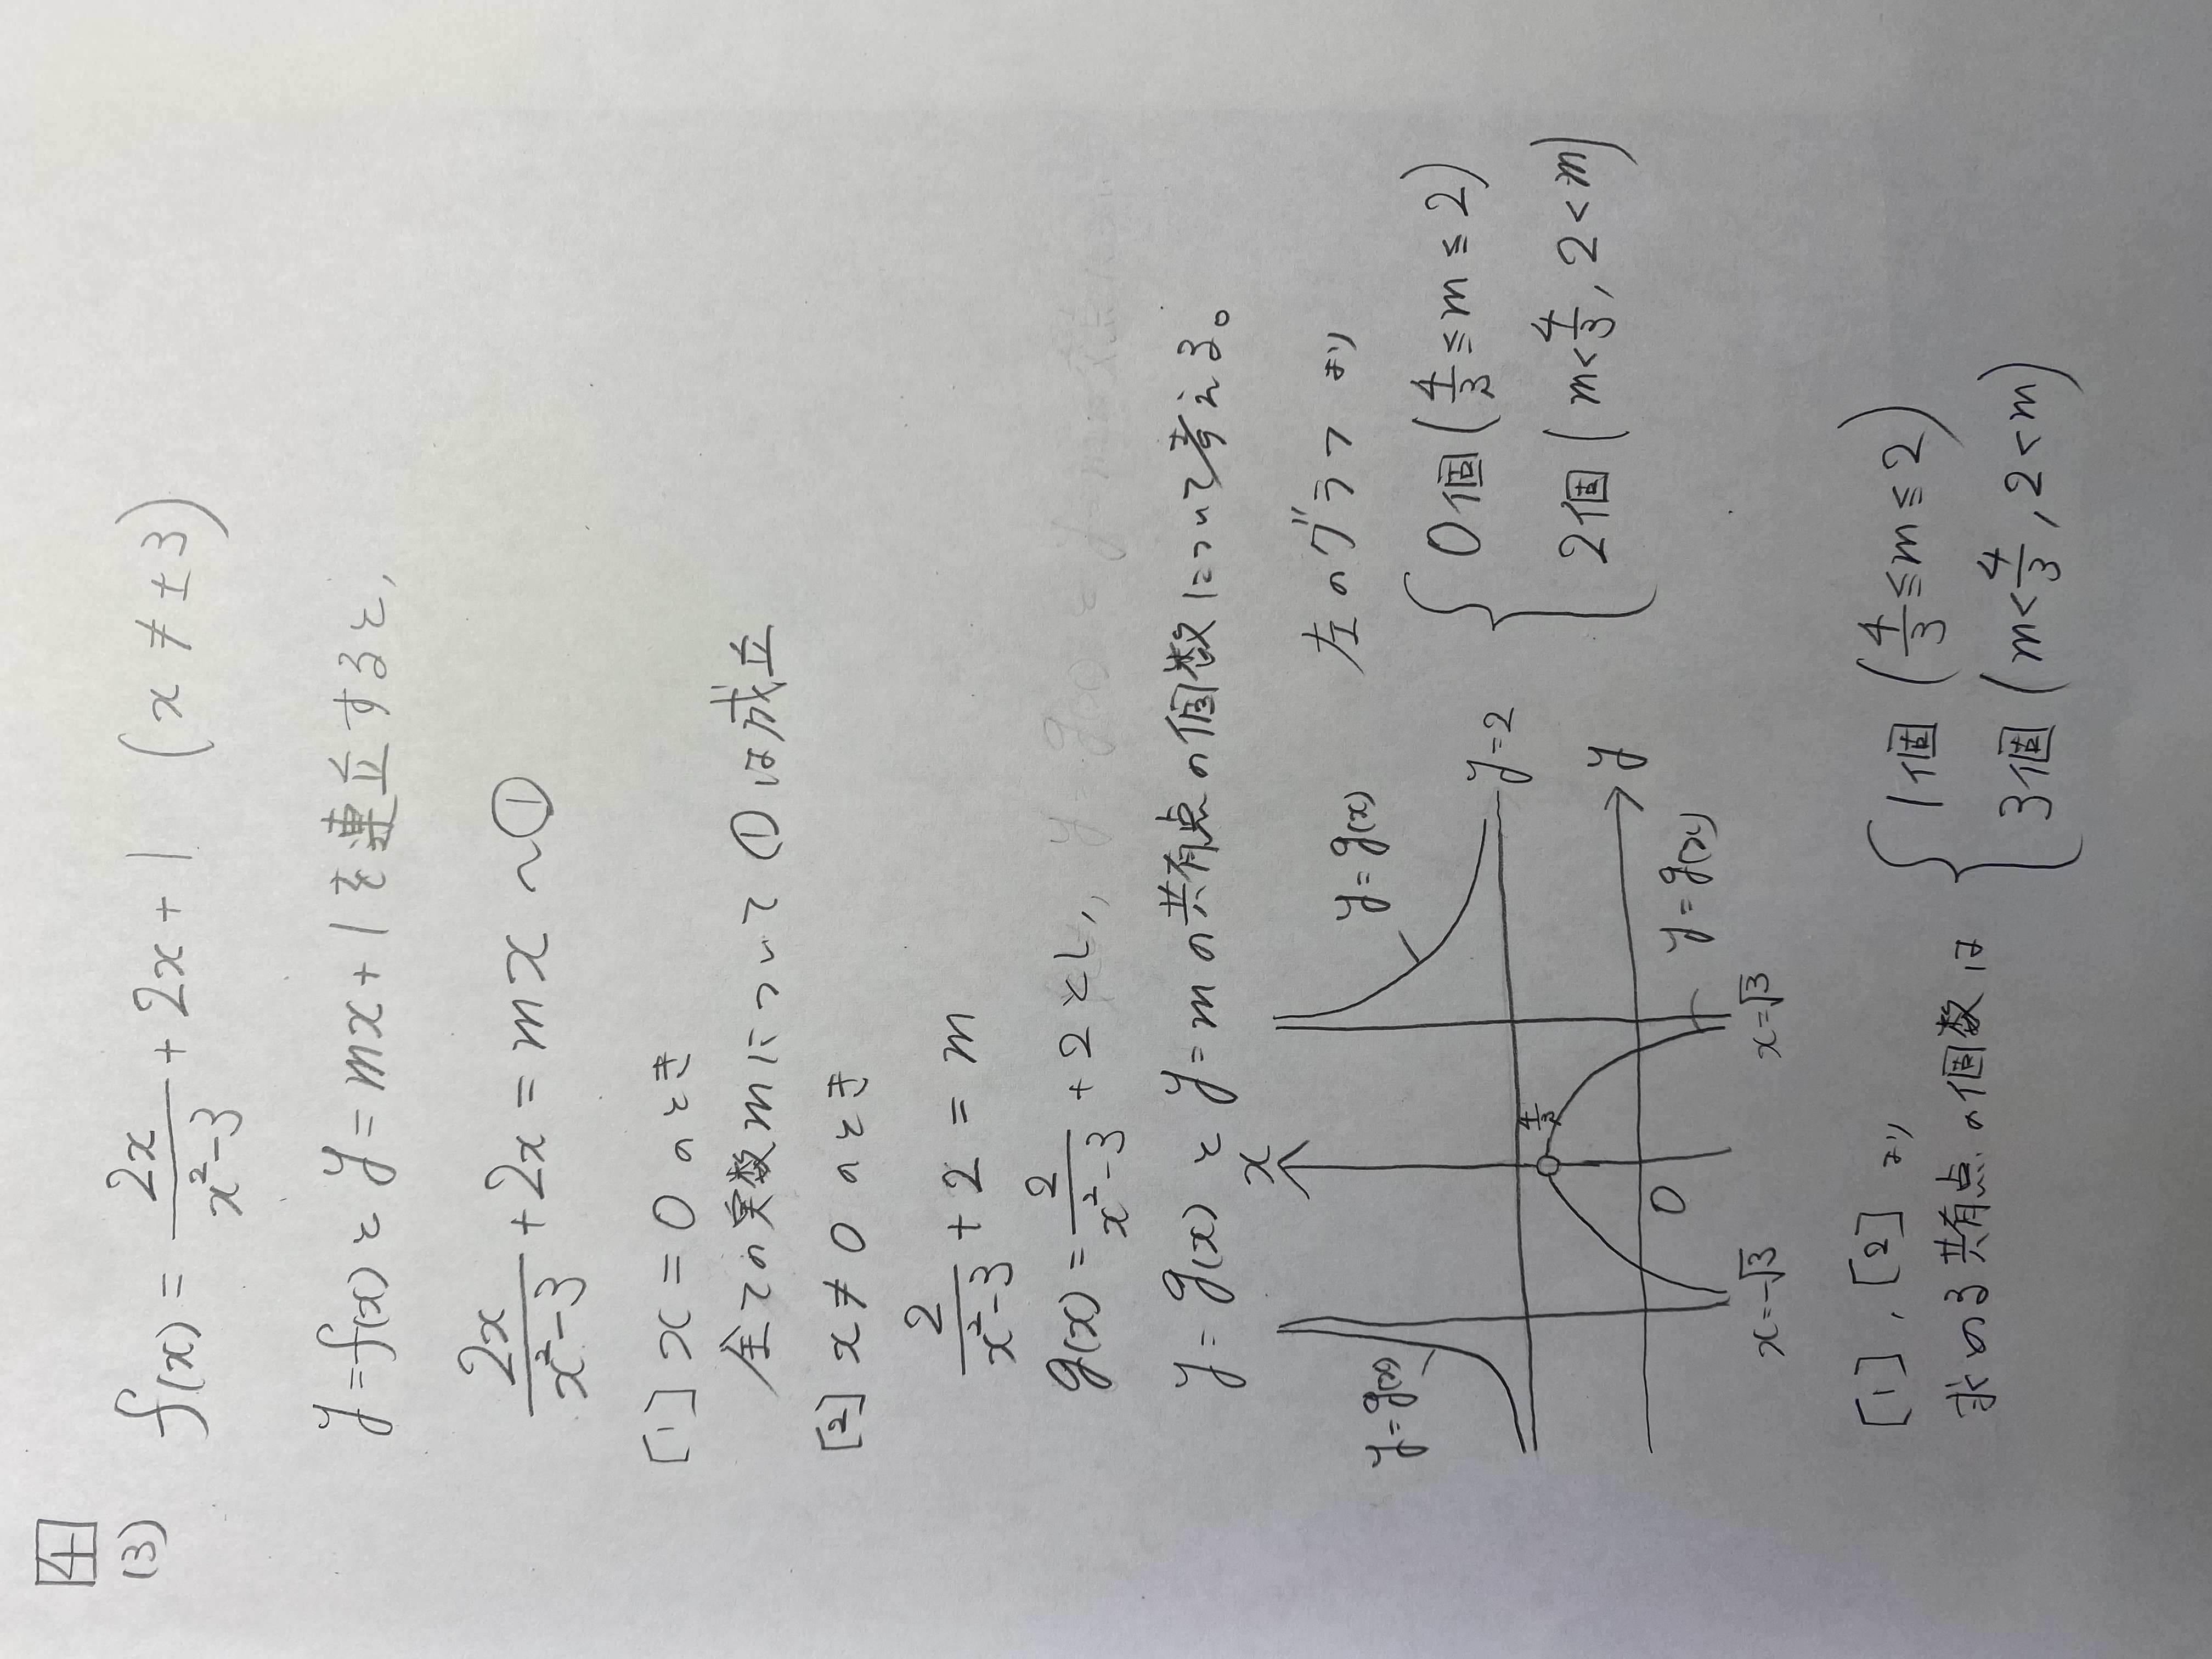 4
(3) f(x) = 2x/(x²-3) + 2x + 1 (x ≠ ±3)
y = f(x) と y = mx + 1 を連立すると,
2x/(x²-3) + 2x = mx 〜①
[1] x = 0 のとき
全ての実数mについて①は成立
[2] x ≠ 0 のとき
2/(x²-3) + 2 = m
g(x) = 2/(x²-3) + 2 とし,
y = g(x) と y = m の共有点の個数について考える。
x
y = g(x)
y = g(x)
y = 2
4/3
y
0
y = g(x)
x = -√3
x = √3
左のグラフより
{ 0個 (4/3 ≦ m ≦ 2)
2個 (m < 4/3, 2 < m)
[1], [2] より
求める共有点の個数は { 1個 (4/3 ≦ m ≦ 2)
3個 (m < 4/3, 2 < m)